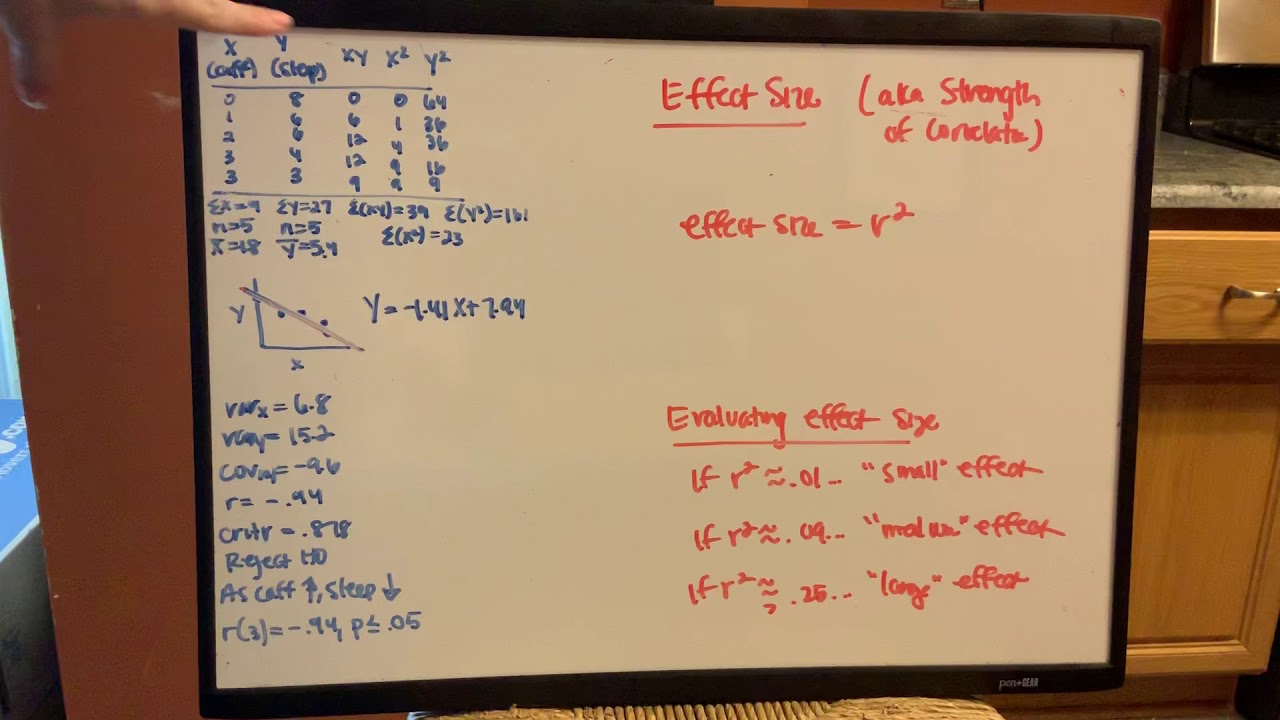 X Y XY X² Y²
(caff) (sleep)
0 8 0 0 64
1 6 6 1 36
2 6 12 4 36
3 4 12 9 16
3 3 9 9 9
ΣX=9 ΣY=27 Σ(XY)=39 Σ(Y²)=161
n=5 n=5 Σ(X²)=23
X̄=1.8 Ȳ=5.4
Y
X
Y = -1.41X+7.94
varx = 6.8
vary = 15.2
covxy = -9.6
r = -.94
crit r = .878
Reject H0
As caff ↑, sleep ↓
r(3) = -.94, p ≤ .05
Effect Size (aka Strength
of Correlation)
effect size = r²
Evaluating effect size
If r² ≈ .01... "small" effect
If r² ≈ .09... "medium" effect
If r² ≈ .25... "large" effect
pen+GEAR